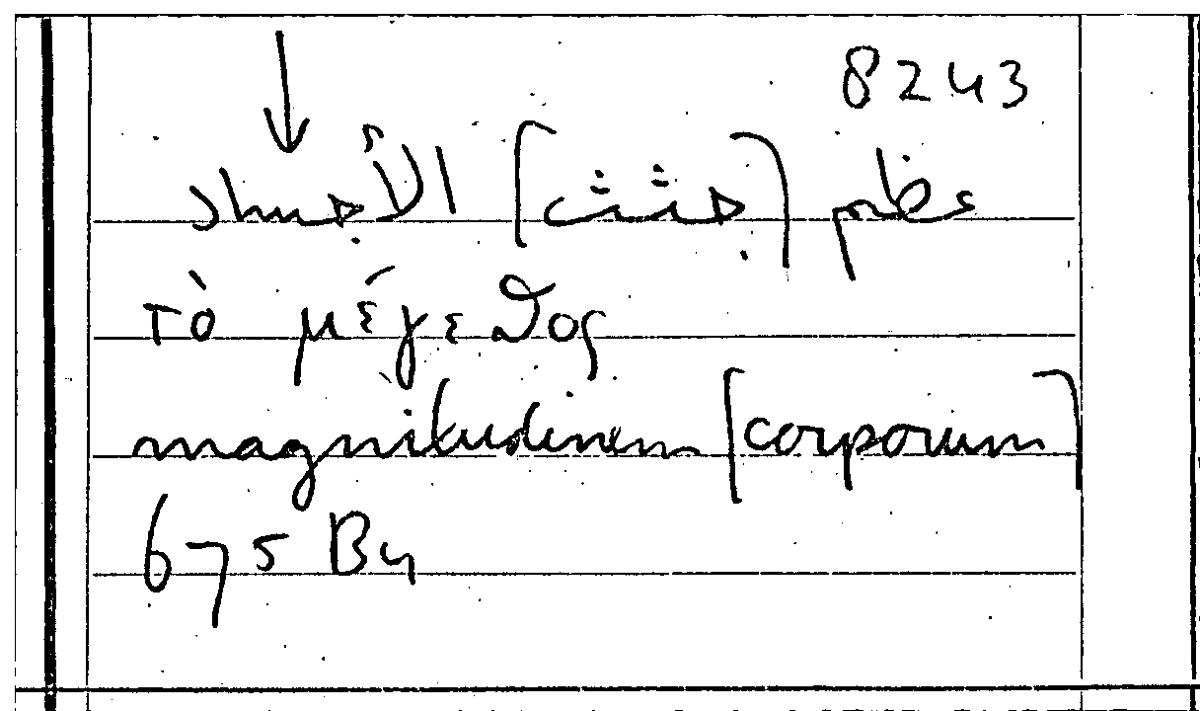 8243
عظم [جثث] الأجساد
τὸ μέγεθος
magnitudinem [corporum]
675 B4